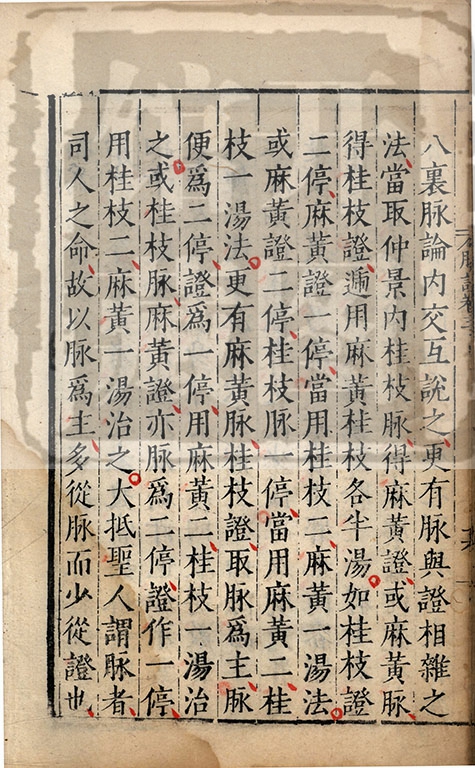 八裏脉論内交互說之更有脉與證相雜之
法當取仲景内桂枝脉得麻黄證或麻黄脉
得桂枝證遍用麻黄桂枝各半湯如桂枝證
二停麻黄證一停當用桂枝二麻黄一湯法
或麻黄證二停桂枝脉一停當用麻黄二桂
枝一湯法更有麻黄脉桂枝證取脉爲主脉
便爲二停證爲一停用麻黄二桂枝一湯治
之或桂枝脉麻黄證亦脉爲二停證作一停
用桂枝二麻黄一湯治之大抵聖人謂脉者
司人之命故以脉爲主多從脉而少從證也